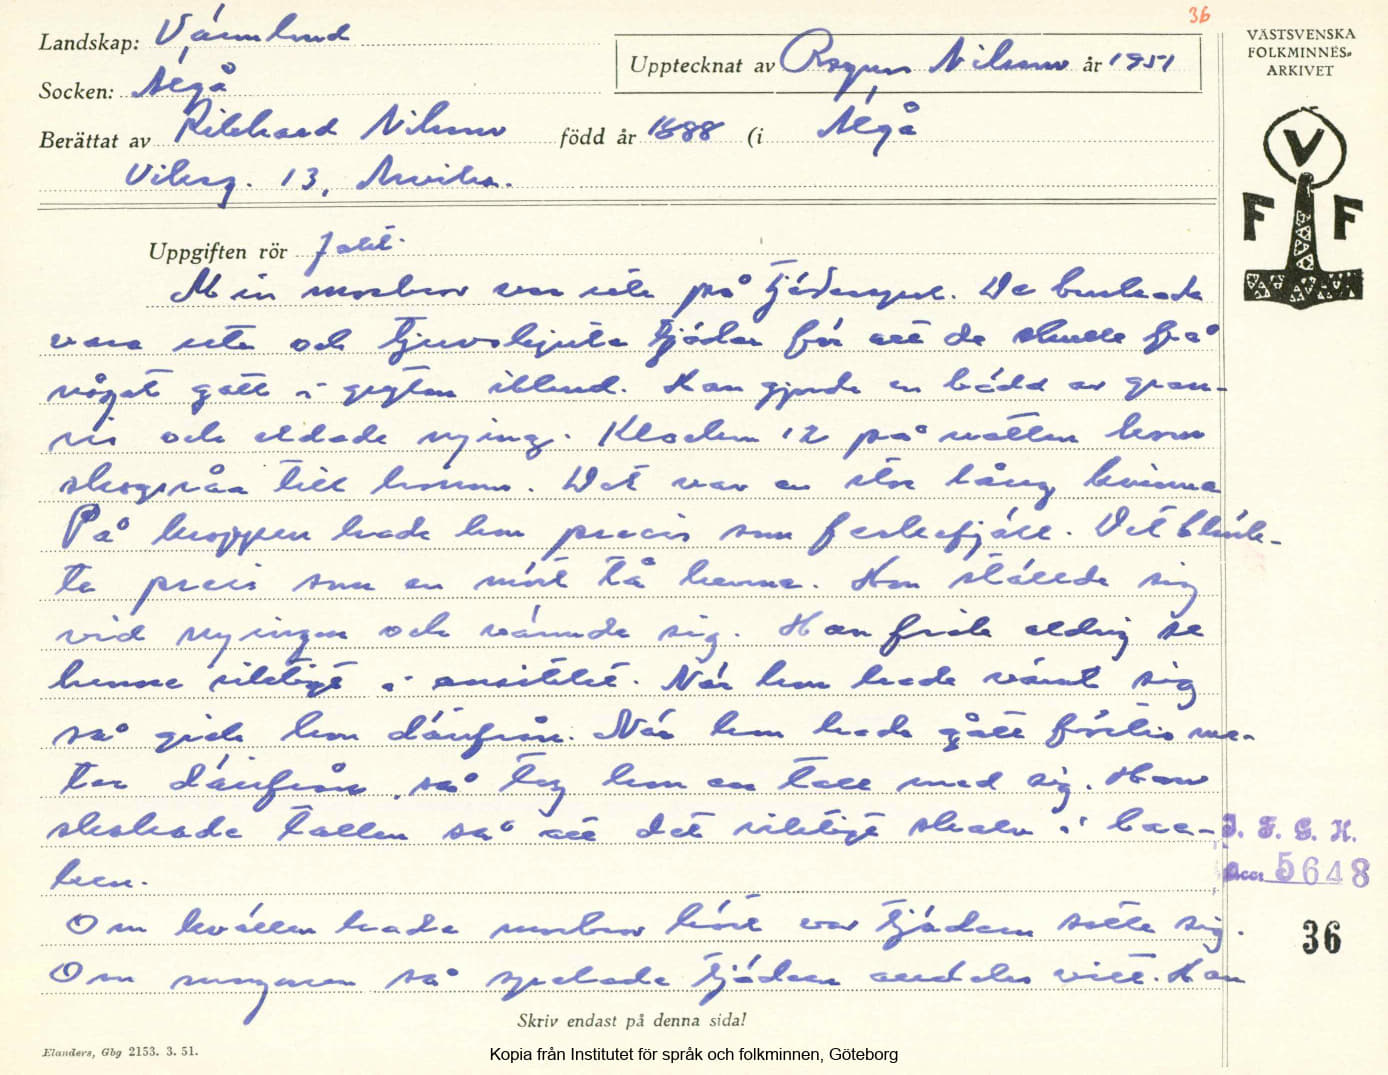 36
Landskap: Värmland
Upptecknat av Ragnar Nilsson år 1951
VÄSTSVENSKA
FOLKMINNES-
ARKIVET
Socken: Älgå
Berättat av Rikhard Nilsson född år 1888 (i Älgå
Viksg. 13, Arvika.
V
F F
Uppgiften rör Jakt.
Min morbror var ute på tjäderspel. De brukade
vara ute och tjuvskjuta tjädar för att de skulle få
något gott i grytan ibland. Han gjorde en bädd av gran-
ris och eldade nying. Klockan 12 på natten kom
skogsråa till honom. Det var en stor lång kvinna
På kroppen hade hon precis som fiskefjäll. Det blänk-
te precis som en mört på henne. Hon ställde sig
vid nyingen och värmde sig. Han fick aldrig se
henne riktigt i ansiktet. När hon hade värmt sig
så gick hon därifrån. När hon hade gått förtio me-
ter därifrån, så tog hon en tall med sig. Hon
skakade tallen så att det riktigt skalv i bac-
ken.
I. F. G. H.
Acc. 5648
36
Om kvällen hade morbror hört var tjädern satte sig.
Om morgonen så spelade tjädern alldeles vilt. Han
Skriv endast på denna sida!
Elanders, Gbg 2153. 3. 51.
Kopia från Institutet för språk och folkminnen, Göteborg